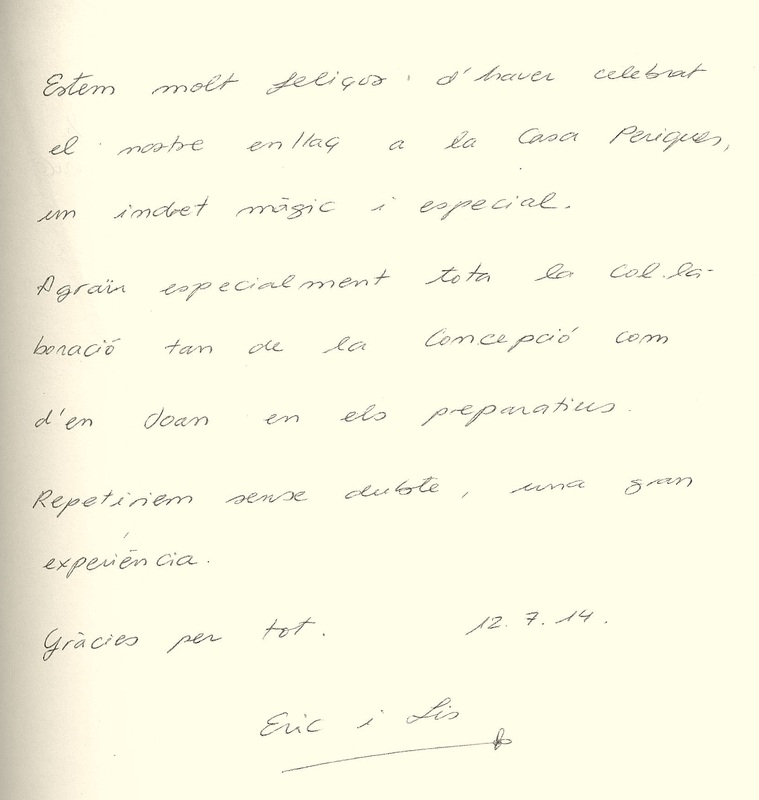 Estem molt feliços d'haver celebrat
el nostre enllaç a la Casa Periques,
un indret màgic i especial.
Agraïm especialment tota la col.la-
boració tan de la Concepció com
d'en Joan en els preparatius.
Repetiriem sense dubte, una gran
experiència.
Gràcies per tot. 12.7.14.
Eric i Lis